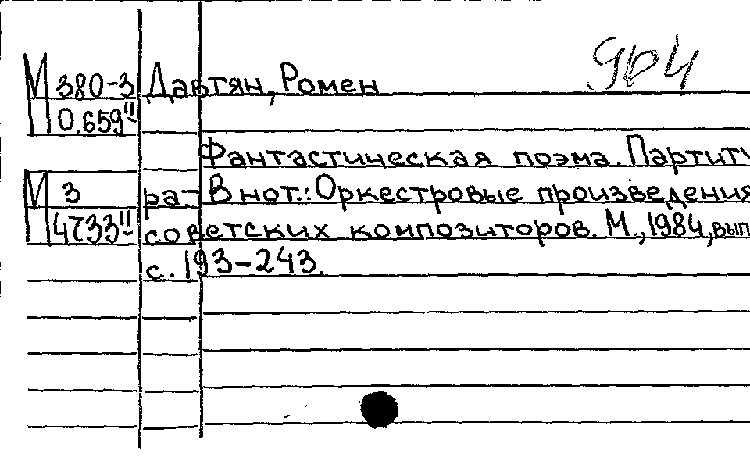 904
М 380-3 Давтян, Ромен
0.659 II
Фантастическая поэма. Партиту
М 3 ра- В нот.: Оркестровые произведения
4733 II советских композиторов. М., 1984, вып
с. 193-243.